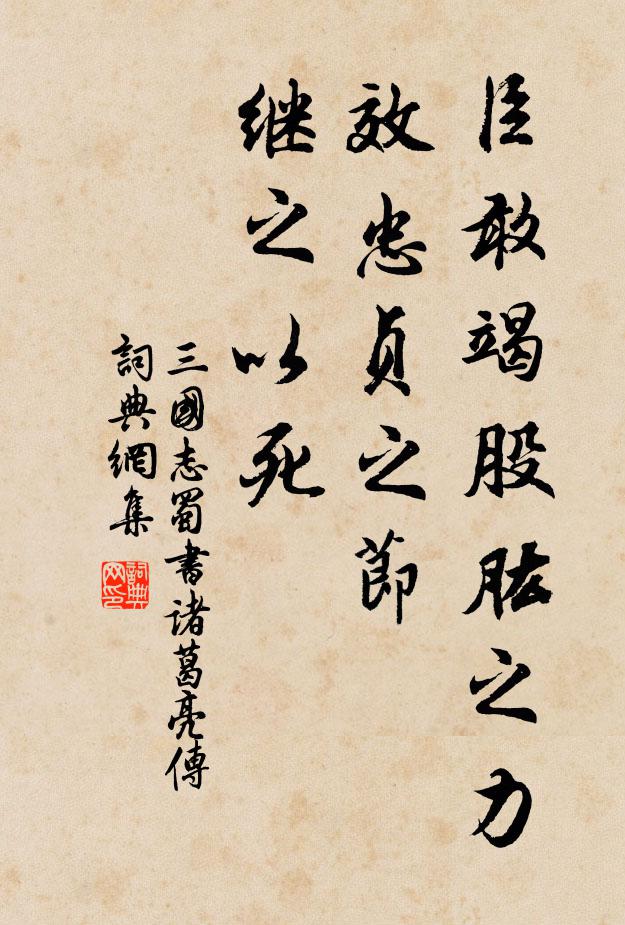 臣敢竭股肱之力
效忠貞之節
继之以死
三國志蜀書諸葛亮傳
詞典網集
詞典网印